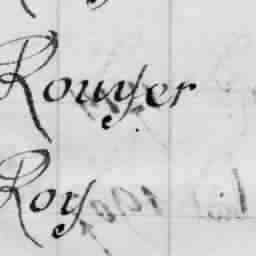 Rouyer
Roy